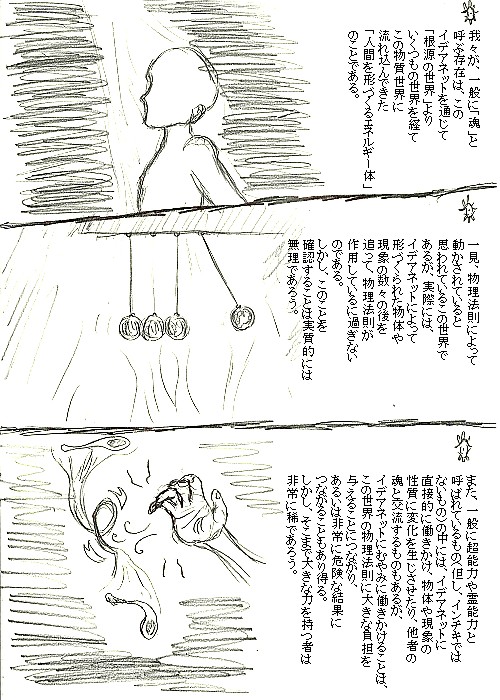 我々が、一般に「魂」と
呼ぶ存在は、この
イデアネットを通じて
「根源の世界」より
いくつもの世界を経て
この物質世界に
流れ込んできた
「人間を形づくるエネルギー体」
のことである。
一見、物理法則によって
動かされていると
思われているこの世界で
あるが、実際には、
イデアネットによって
形づくられた物体や
現象の数々の後を
追って、物理法則が
作用しているに過ぎない
のである。
しかし、このことを
確認することは実質的には
無理であろう。
また、一般に超能力や霊能力と
呼ばれているもの(但し、インチキでは
ないもの)の中には、イデアネットに
直接的に働きかけ、物体や現象の
性質に変化を生じさせたり、他者の
魂と交流するものもあるが、
イデアネットにむやみに働きかけることは、
この世界の物理法則に大きな負担を
与えることにつながり、
あるいは非常に危険な結果に
つながることもあり得る。
しかし、そこまで大きな力を持つ者は
非常に稀であろう。